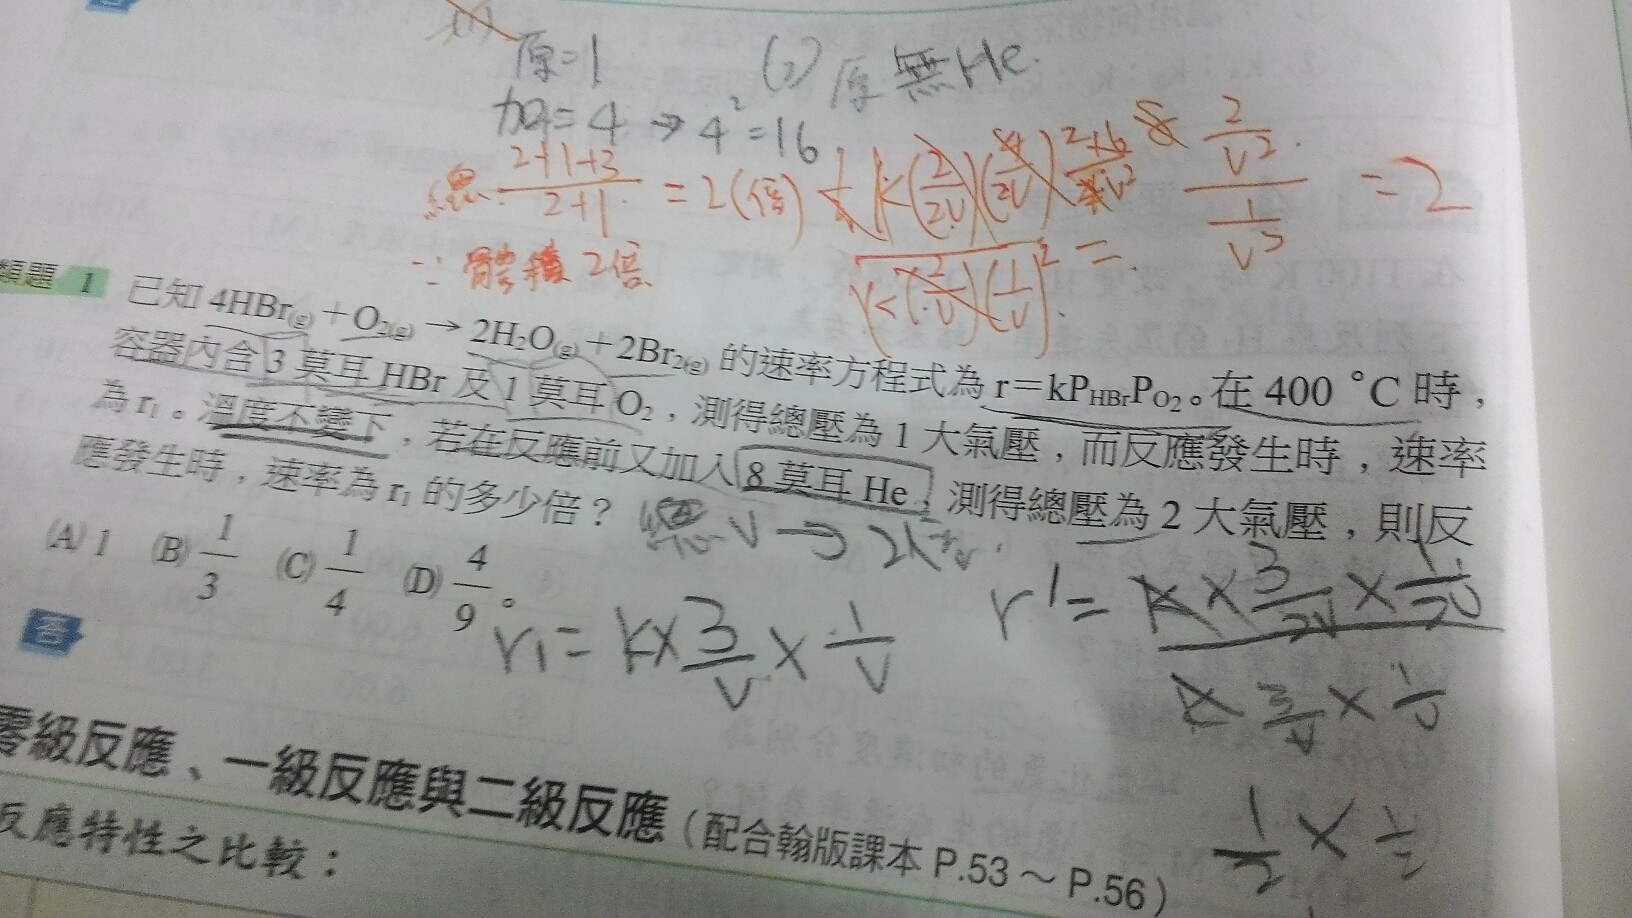 原=1
(2) 原無He.
加=4 → 4²=16
總: 2+1+3 / 2+1 = 2(倍)
∴ 體積2倍
= 2
類題 1 已知 4HBr(g)+O2(g) → 2H2O(g)+2Br2(g) 的速率方程式為 r=kPHBrPO2。在 400 °C 時,
容器內含 3 莫耳 HBr 及 1 莫耳 O2,測得總壓為 1 大氣壓,而反應發生時,速率
為 r1。溫度不變下,若在反應前又加入 8 莫耳 He,測得總壓為 2 大氣壓,則反
應發生時,速率為 r1 的多少倍?
(A) 1 (B) 1/3 (C) 1/4 (D) 4/9。
答
r1= k× 3/V × 1/V
r'= k × 3/2V × 1/2V
k 3/V × 1/V
1/2 × 1/2
零級反應、一級反應與二級反應(配合翰版課本 P.53～P.56)
反應特性之比較: